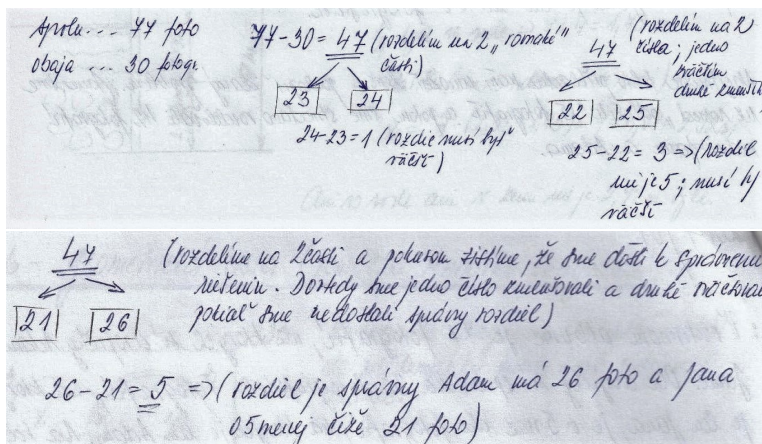 spolu ... 77 foto
obaja ... 30 fotogr
77-30 = 47 (rozdelím na 2 „rovnaké"
časti)
23 24
24-23=1 (rozdiel musí byť
väčší)
47 (rozdelím na 2
čísla; jedno
zväčším
druhé zmenší
22 25
25-22 = 3 => (rozdiel
nie je 5; musí by
väčší
47 (rozdelíme na 2 časti a pokusom zistíme, že sme došli k správnemu
riešeniu. Dovtedy sme jedno číslo zmenšovali a druhé zväčšoval
pokiaľ sme nedostali správny rozdiel)
21 26
26-21= 5 => (rozdiel je správny Adam má 26 foto a Jana
o 5 menej čiže 21 foto)